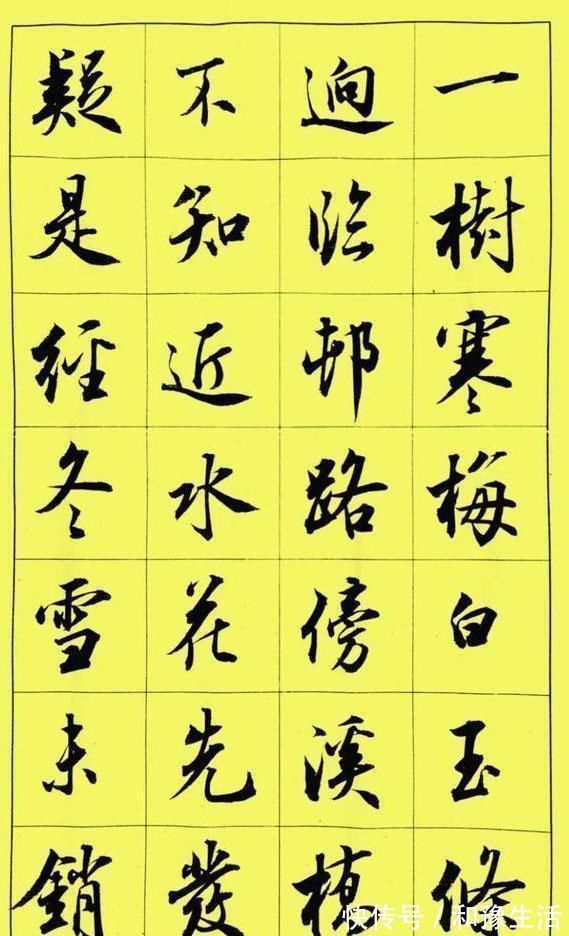 一樹寒梅白玉條
逈臨邨路傍溪橋
不知近水花先發
疑是經冬雪未銷
快传号 / 和豫生活